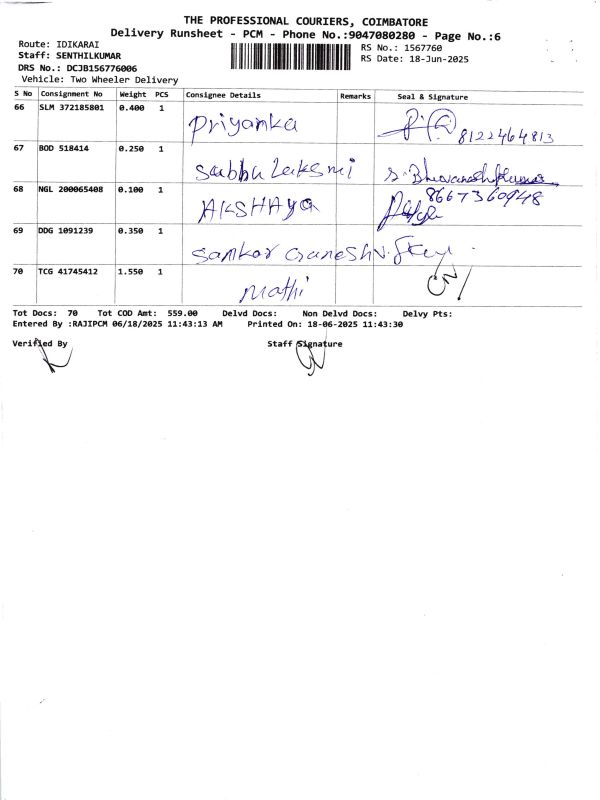 THE PROFESSIONAL COURIERS, COIMBATORE
Delivery Runsheet - PCM - Phone No.:9047080280 - Page No.:6
Route: IDIKARAI
RS No.: 1567760
Staff: SENTHILKUMAR
RS Date: 18-Jun-2025
DRS No.: DCJB156776006
Vehicle: Two Wheeler Delivery
S No Consignment No Weight PCS Consignee Details Remarks Seal & Signature
66 SLM 372185801 0.400 1 Priyamka 8122464813
67 BOD 518414 0.250 1 Subbu Lakshmi S. Bhuvaneshkumar
68 NGL 200065408 0.100 1 AKSHAYA 8667360948
69 DDG 1091239 0.350 1 Sankar Ganesh
70 TCG 41745412 1.550 1 Mathi
Tot Docs: 70 Tot COD Amt: 559.00 Delvd Docs: Non Delvd Docs: Delvy Pts:
Entered By :RAJIPCM 06/18/2025 11:43:13 AM Printed On: 18-06-2025 11:43:30
Verified By Staff Signature